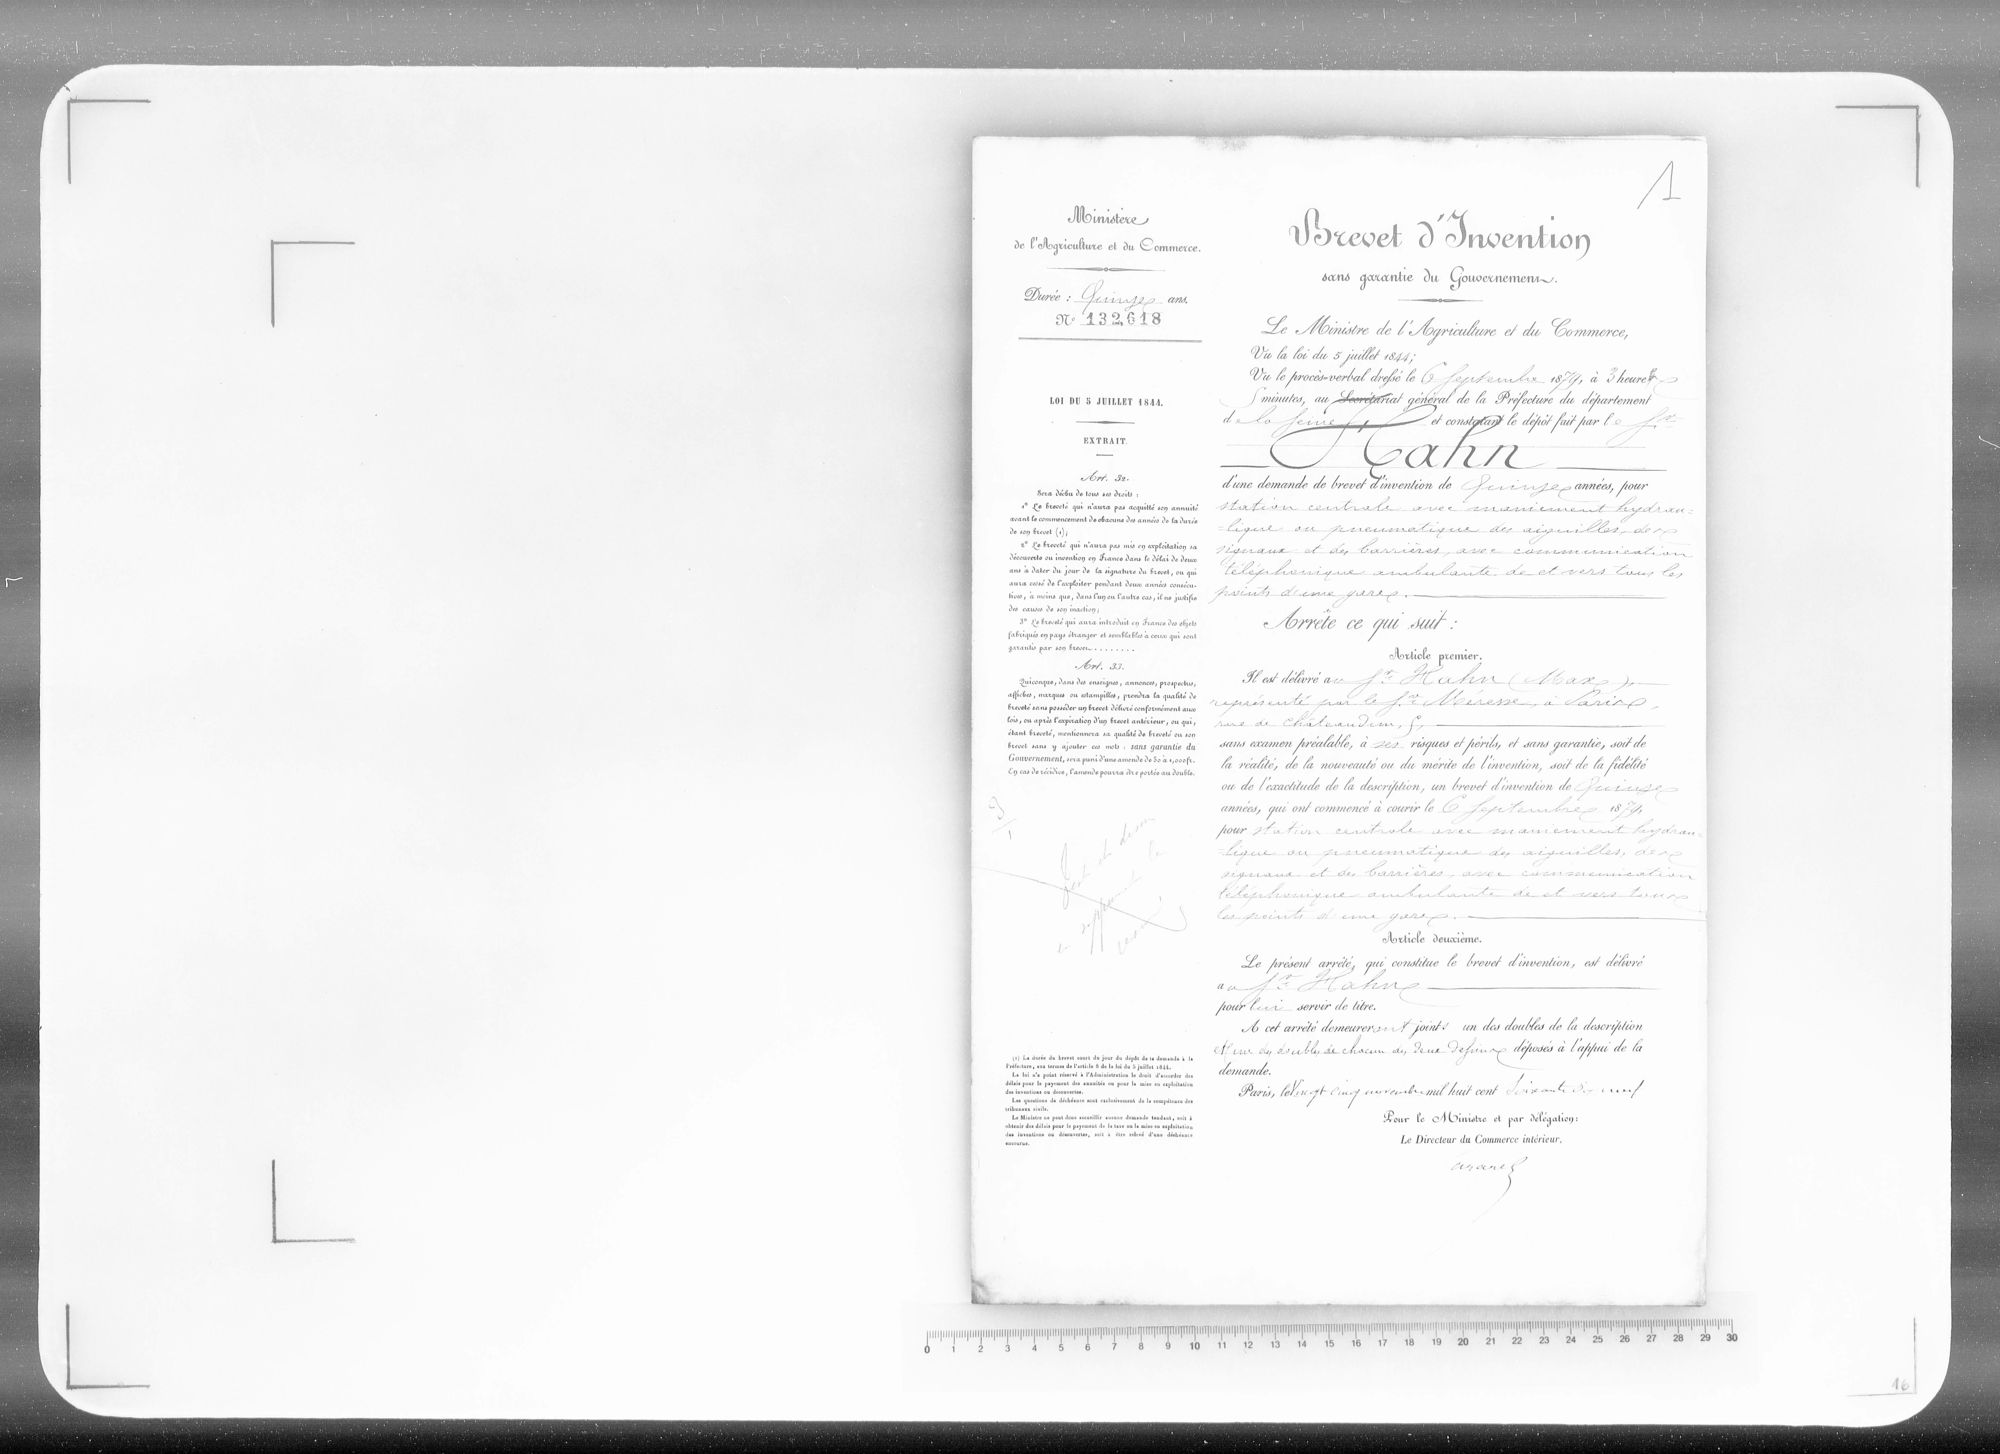 1
Ministère
de l'Agriculture et du Commerce.
Durée : Quinze ans.
N° 132618
LOI DU 5 JUILLET 1844.
EXTRAIT.
Art. 32.
Sera déchu de tous ses droits :
1° Le breveté qui n'aura pas acquitté son annuité
avant le commencement de chacune des années de la durée
de son brevet (1);
2° Le breveté qui n'aura pas mis en exploitation sa
découverte ou invention en France dans le délai de deux
ans à dater du jour de la signature du brevet, ou qui
aura cessé de l'exploiter pendant deux années consécu-
tives, à moins que, dans l'un ou l'autre cas, il ne justifie
des causes de son inaction;
3° Le breveté qui aura introduit en France des objets
fabriqués en pays étranger et semblables à ceux qui sont
garantis par son brevet.........
Art. 33.
Quiconque, dans des enseignes, annonces, prospectus,
affiches, marques ou estampilles, prendra la qualité de
breveté sans posséder un brevet délivré conformément aux
lois, ou après l'expiration d'un brevet antérieur, ou qui,
étant breveté, mentionnera sa qualité de breveté ou son
brevet sans y ajouter ces mots : sans garantie du
Gouvernement, sera puni d'une amende de 50 à 1,000 fr.
En cas de récidive, l'amende pourra être portée au double.
(1) La durée du brevet court du jour du dépôt de la demande à la
Préfecture, aux termes de l'article 8 de la loi du 5 juillet 1844.
La loi n'a point réservé à l'Administration le droit d'accorder des
délais pour le payement des annuités ou pour la mise en exploitation
des inventions ou découvertes.
Les questions de déchéance sont exclusivement de la compétence des
tribunaux civils.
Le Ministre ne peut donc accueillir aucune demande tendant, soit à
obtenir des délais pour le payement de la taxe ou la mise en exploitation
des inventions ou découvertes, soit à être relevé d'une déchéance
encourue.
Brevet d'Invention
sans garantie du Gouvernement.
Le Ministre de l'Agriculture et du Commerce,
Vu la loi du 5 juillet 1844;
Vu le procès-verbal dressé le 6 Septembre 1879, à 3 heures
minutes, au Secrétariat général de la Préfecture du département
de la Seine et constatant le dépôt fait par le Sr
Hahn
d'une demande de brevet d'invention de Quinze années, pour
station centrale avec maniement hydrau-
-lique ou pneumatique des aiguilles, des
signaux et des barrières, avec communication
téléphonique ambulante de et vers tous les
points d'une gare.
Arrête ce qui suit :
Article premier.
Il est délivré au Sr Hahn (Max),
représenté par le Sr Méresse, à Paris,
rue de Châteaudun, 5,
sans examen préalable, à ses risques et périls, et sans garantie, soit de
la réalité, de la nouveauté ou du mérite de l'invention, soit de la fidélité
ou de l'exactitude de la description, un brevet d'invention de Quinze
années, qui ont commencé à courir le 6 Septembre 1879,
pour station centrale avec maniement hydrau-
-lique ou pneumatique des aiguilles, des
signaux et des barrières, avec communication
téléphonique ambulante de et vers tous
les points d'une gare.
Article deuxième.
Le présent arrêté, qui constitue le brevet d'invention, est délivré
au Sr Hahn
pour lui servir de titre.
A cet arrêté demeureront joints un des doubles de la description
et un des doubles de chacun des deux dessins déposés à l'appui de la
demande.
Paris, le Vingt cinq novembre mil huit cent soixante dix neuf
Pour le Ministre et par délégation:
Le Directeur du Commerce intérieur.
0 1 2 3 4 5 6 7 8 9 10 11 12 13 14 15 16 17 18 19 20 21 22 23 24 25 26 27 28 29 30
16